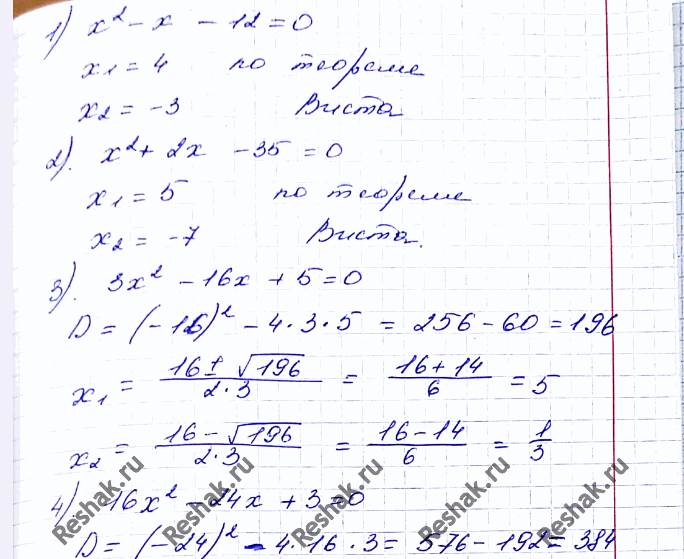 1) x² - x - 12 = 0
x₁ = 4 по теореме
x₂ = -3 Виета
2). x² + 2x - 35 = 0
x₁ = 5 по теореме
x₂ = -7 Виета.
3). 3x² - 16x + 5 = 0
D = (-16)² - 4·3·5 = 256 - 60 = 196
x₁ = (16 ± √196)/(2·3) = (16 + 14)/6 = 5
x₂ = (16 - √196)/(2·3) = (16 - 14)/6 = 1/3
4) 16x² - 24x + 3 = 0
D = (-24)² - 4·16·3 = 576 - 192 = 384
Reshak.ru Reshak.ru Reshak.ru Reshak.ru Reshak.ru